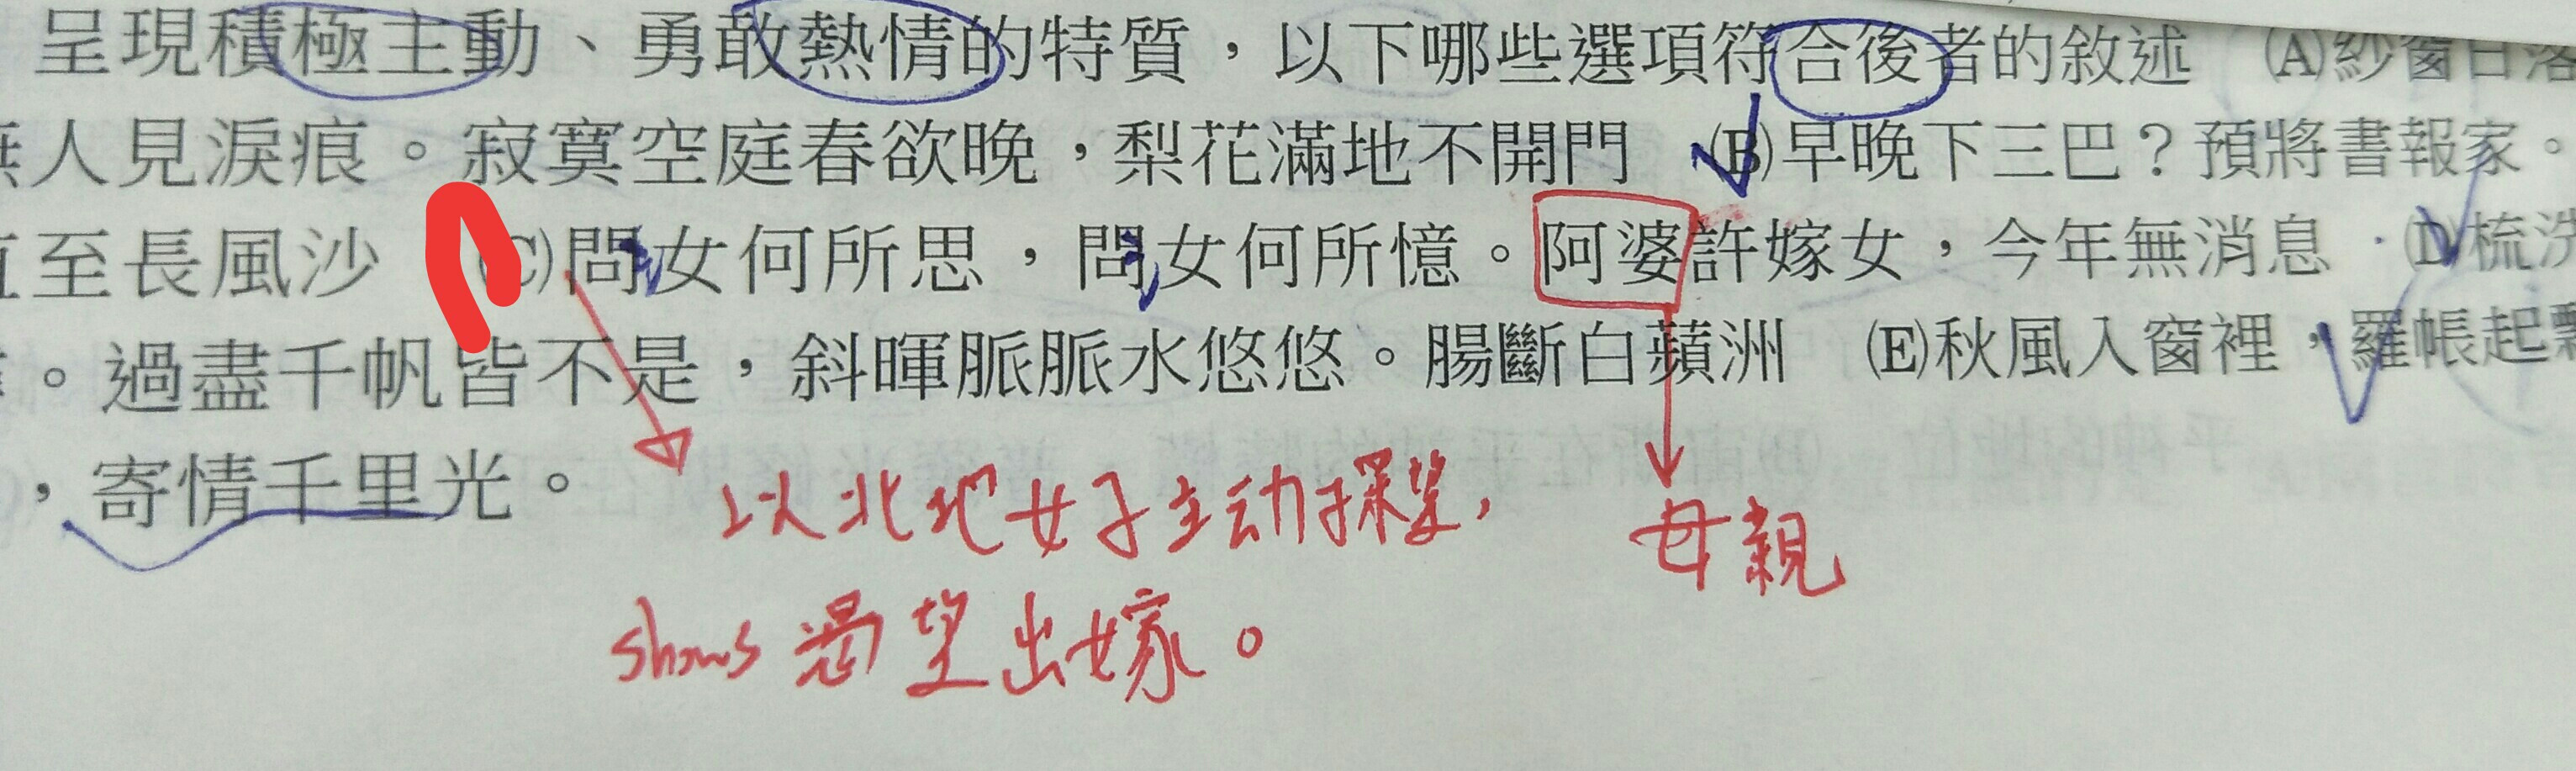 呈現積極主動、勇敢熱情的特質，以下哪些選項符合後者的敘述 (A)紗窗日落
無人見淚痕。寂寞空庭春欲晚，梨花滿地不開門 (B)早晚下三巴？預將書報家。
直至長風沙 (C)問女何所思，問女何所憶。阿婆許嫁女，今年無消息 (D)梳洗
。過盡千帆皆不是，斜暉脈脈水悠悠。腸斷白蘋洲 (E)秋風入窗裡，羅帳起飄
，寄情千里光。
以北地女子主动探望，
母親
shows 渴望出嫁。